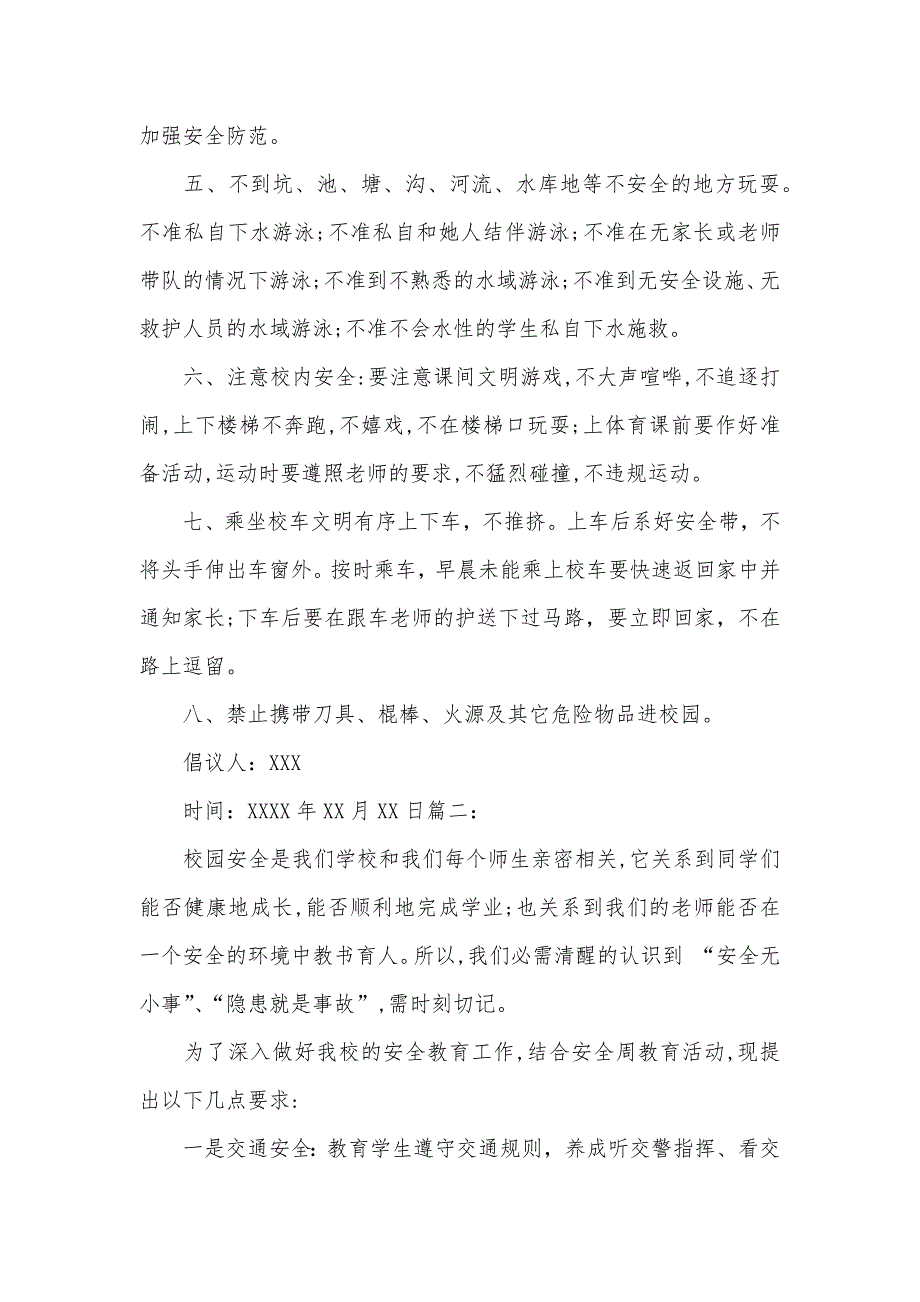 加强安全防范。
五、不到坑、池、塘、沟、河流、水库地等不安全的地方玩耍。
不准私自下水游泳;不准私自和她人结伴游泳;不准在无家长或老师
带队的情况下游泳;不准到不熟悉的水域游泳;不准到无安全设施、无
救护人员的水域游泳;不准不会水性的学生私自下水施救。
六、注意校内安全:要注意课间文明游戏,不大声喧哗,不追逐打
闹,上下楼梯不奔跑,不嬉戏,不在楼梯口玩耍;上体育课前要作好准
备活动,运动时要遵照老师的要求,不猛烈碰撞,不违规运动。
七、乘坐校车文明有序上下车，不推挤。上车后系好安全带，不
将头手伸出车窗外。按时乘车，早晨未能乘上校车要快速返回家中并
通知家长;下车后要在跟车老师的护送下过马路，要立即回家，不在
路上逗留。
八、禁止携带刀具、棍棒、火源及其它危险物品进校园。
倡议人：XXX
时间：XXXX 年 XX 月 XX 日篇二：
校园安全是我们学校和我们每个师生亲密相关,它关系到同学们
能否健康地成长,能否顺利地完成学业;也关系到我们的老师能否在
一个安全的环境中教书育人。所以,我们必需清醒的认识到 “安全无
小事”、“隐患就是事故”,需时刻切记。
为了深入做好我校的安全教育工作,结合安全周教育活动,现提
出以下几点要求:
一是交通安全：教育学生遵守交通规则，养成听交警指挥、看交